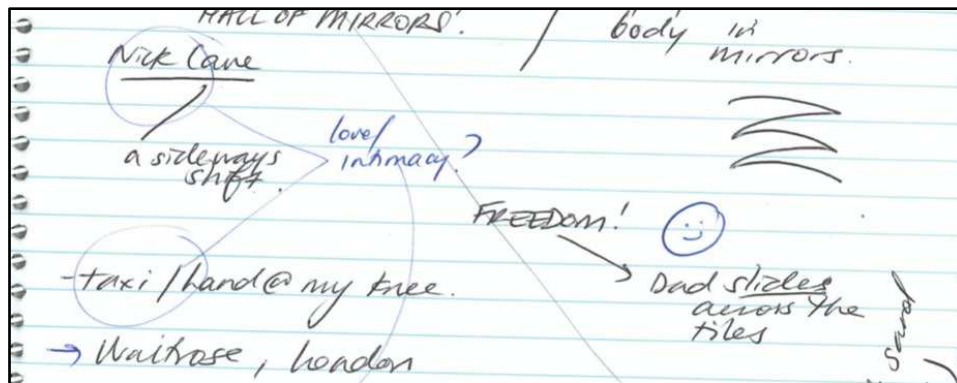 HALL OF MIRRORS!
body in
mirrors.
Nick Cane
a sideways
shift.
love/
intimacy?
FREEDOM!
Dad slides
across the
tiles
- taxi / hand @ my knee.
→ Waitrose, London
sand